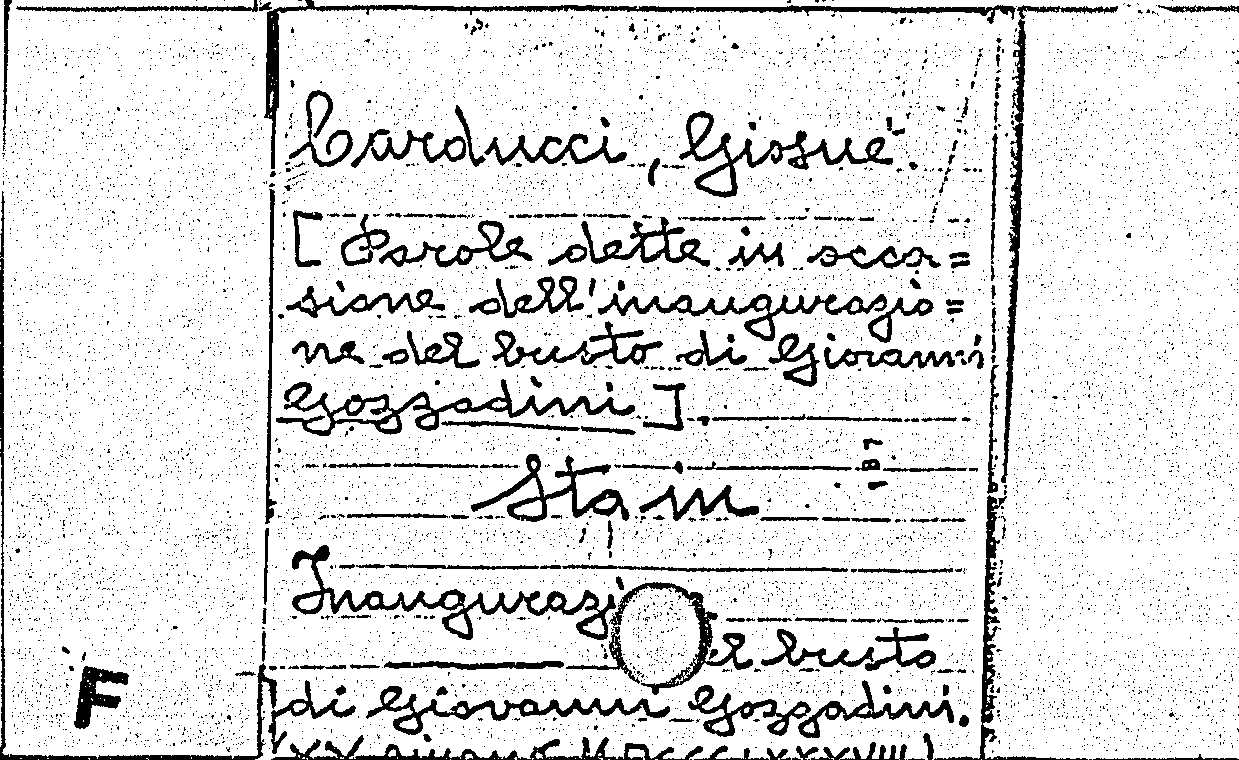 Carducci, Giosuè.
[Parole dette in occa=
sione dell'inaugurazio=
ne del busto di Giovanni
Gozzadini].
Sta in
Inaugurazi
el busto
di Giovanni Gozzadini.
F